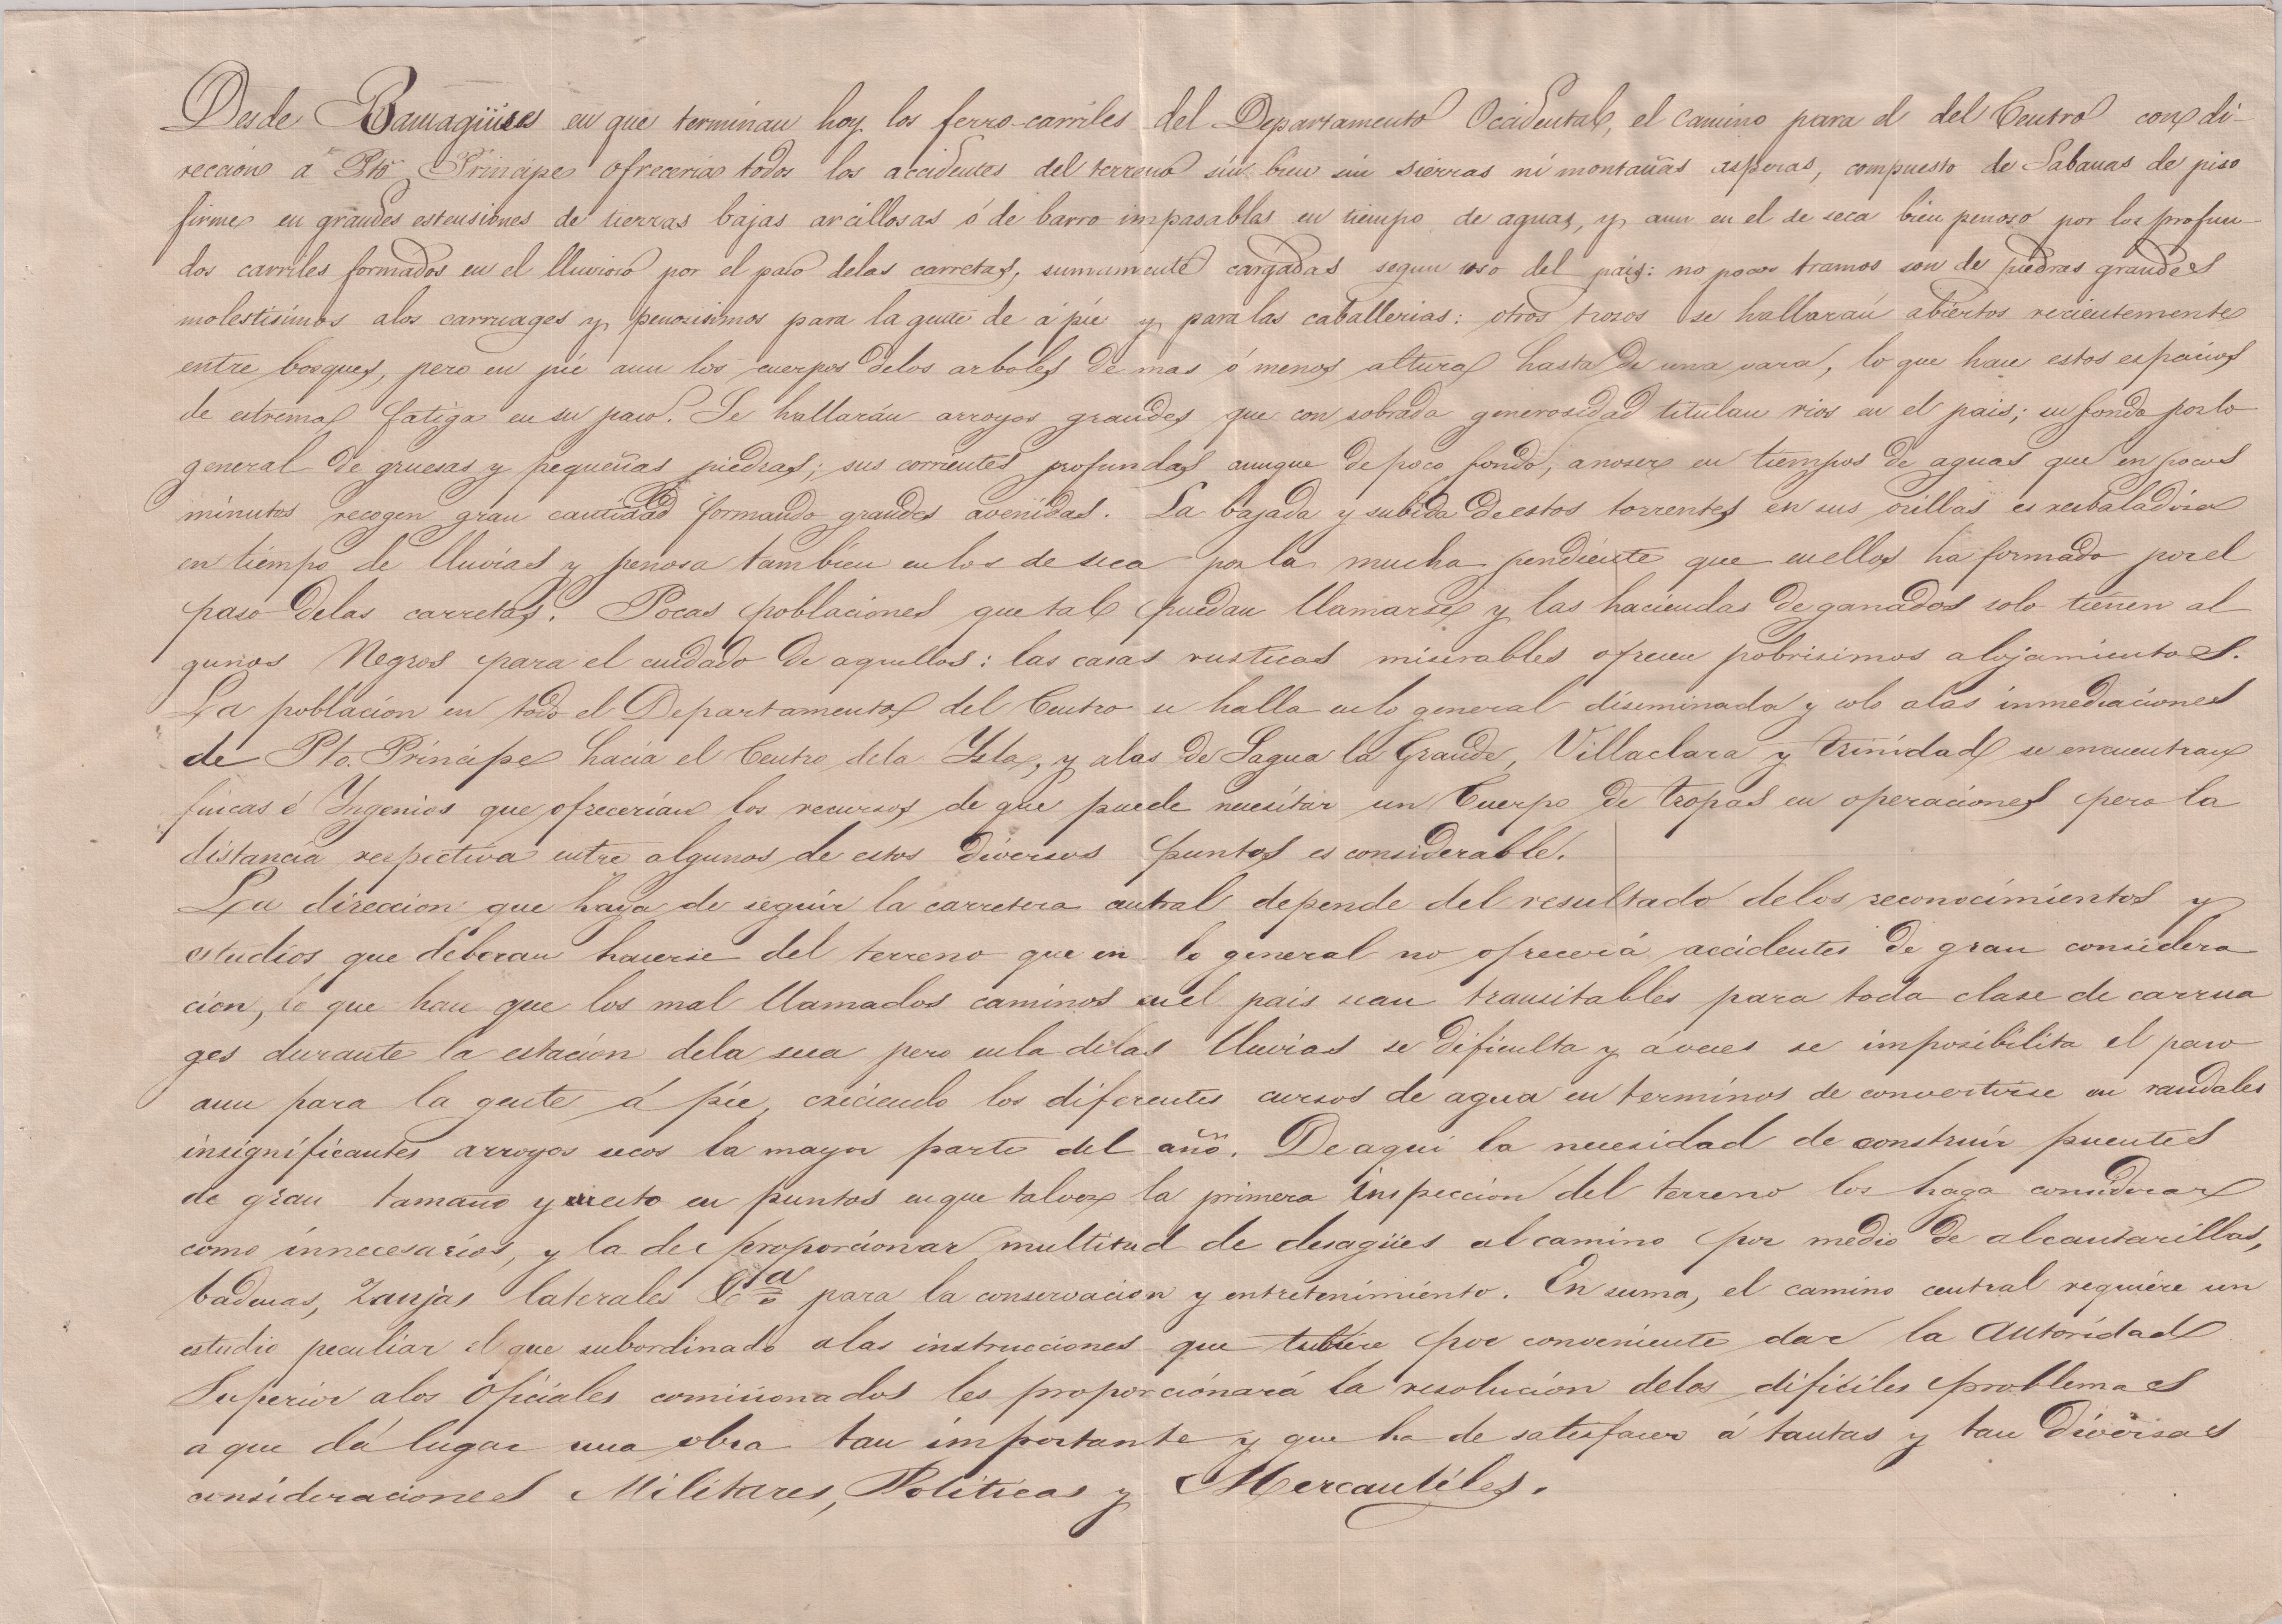 Desde Banagüises en que terminan hoy los ferro-carriles del Departamento Occidental, el camino para el del Centro con di-
reccion a Pto. Principe ofreceria todos los accidentes del terreno sin bien sin sierras ni montañas asperas, compuesto de Sabanas de piso
firme en grandes estensiones de tierras bajas arcillosas ó de barro impasables en tiempo de aguas, y aun en el de seca bien penoso por los profun-
dos carriles formados en el lluvioso por el paso delas carretas, sumamente cargadas segun uso del pais: no pocos tramos son de piedras grandes
molestisimos alos carruages y penosisimos para la gente de á pie y para las caballerias: otros trosos se hallarán abiertos recientemente
entre bosques, pero en pié aun los cuerpos delos arboles de mas ó menos altura hasta de una vara, lo que hace estos espacios
de estrema fatiga en su paso. Se hallarán arroyos grandes que con sobrada generosidad titulan rios en el pais; su fondo por lo
general de gruesas y pequeñas piedras; sus corrientes profundas aunque de poco fondo, a noser en tiempos de aguas que en pocos
minutos recogen gran cantidad formando grandes avenidas. La bajada y subida de estos torrentes en sus orillas es resbaladiza
en tiempo de lluvias y penosa tambien en los de seca por la mucha pendiente que en ellos ha formado por el
paso delas carretas. Pocas poblaciones que tal puedan llamarse y las haciendas de ganados solo tienen al
gunos Negros para el cuidado de aquellos: las casas rusticas miserables ofrecen pobrisimos alojamientos.
La poblacion en todo el Departamento del Centro se halla en lo general diseminada y solo alas inmediaciones
de Pto. Principe hacia el Centro dela Ysla, y alas de Sagua la Grande, Villaclara y Trinidad se encuentran
fincas é Yngenios que ofrecerian los recursos de que puede necesitar un Cuerpo de tropas en operaciones pero la
distancia respectiva entre algunos de estos diversos puntos es considerable.
La direccion que haya de seguir la carretera central depende del resultado delos reconocimientos y
estudios que deberan hacerse del terreno que en lo general no ofrecerá accidentes de gran considera
cion, lo que hace que los mal llamados caminos en el pais sean transitables para toda clase de carrua
ges durante la estacion dela seca pero en la delas lluvias se dificulta y á veces se imposibilita el paso
aun para la gente á pie, creciendo los diferentes cursos de agua en terminos de convertirse en raudales
insignificantes arroyos secos la mayor parte del año. De aqui la necesidad de construir puentes
de gran tamaño y costo en puntos en que talvez la primera inspeccion del terreno los haga considerar
como innecesarios, y la de proporcionar multitud de desagües al camino por medio de alcantarillas,
badenas, zanjas laterales &ta para la conservacion y entretenimiento. En suma, el camino central requiere un
estudio peculiar el que subordinado alas instrucciones que tubiere por conveniente dar la Autoridad
Superior alos Oficiales comisionados les proporcionará la resolucion delos dificiles problemas
a que dá lugar una obra tan importante y que ha de satisfacer á tantas y tan diversas
consideraciones Militares, Politicas y Mercantiles.